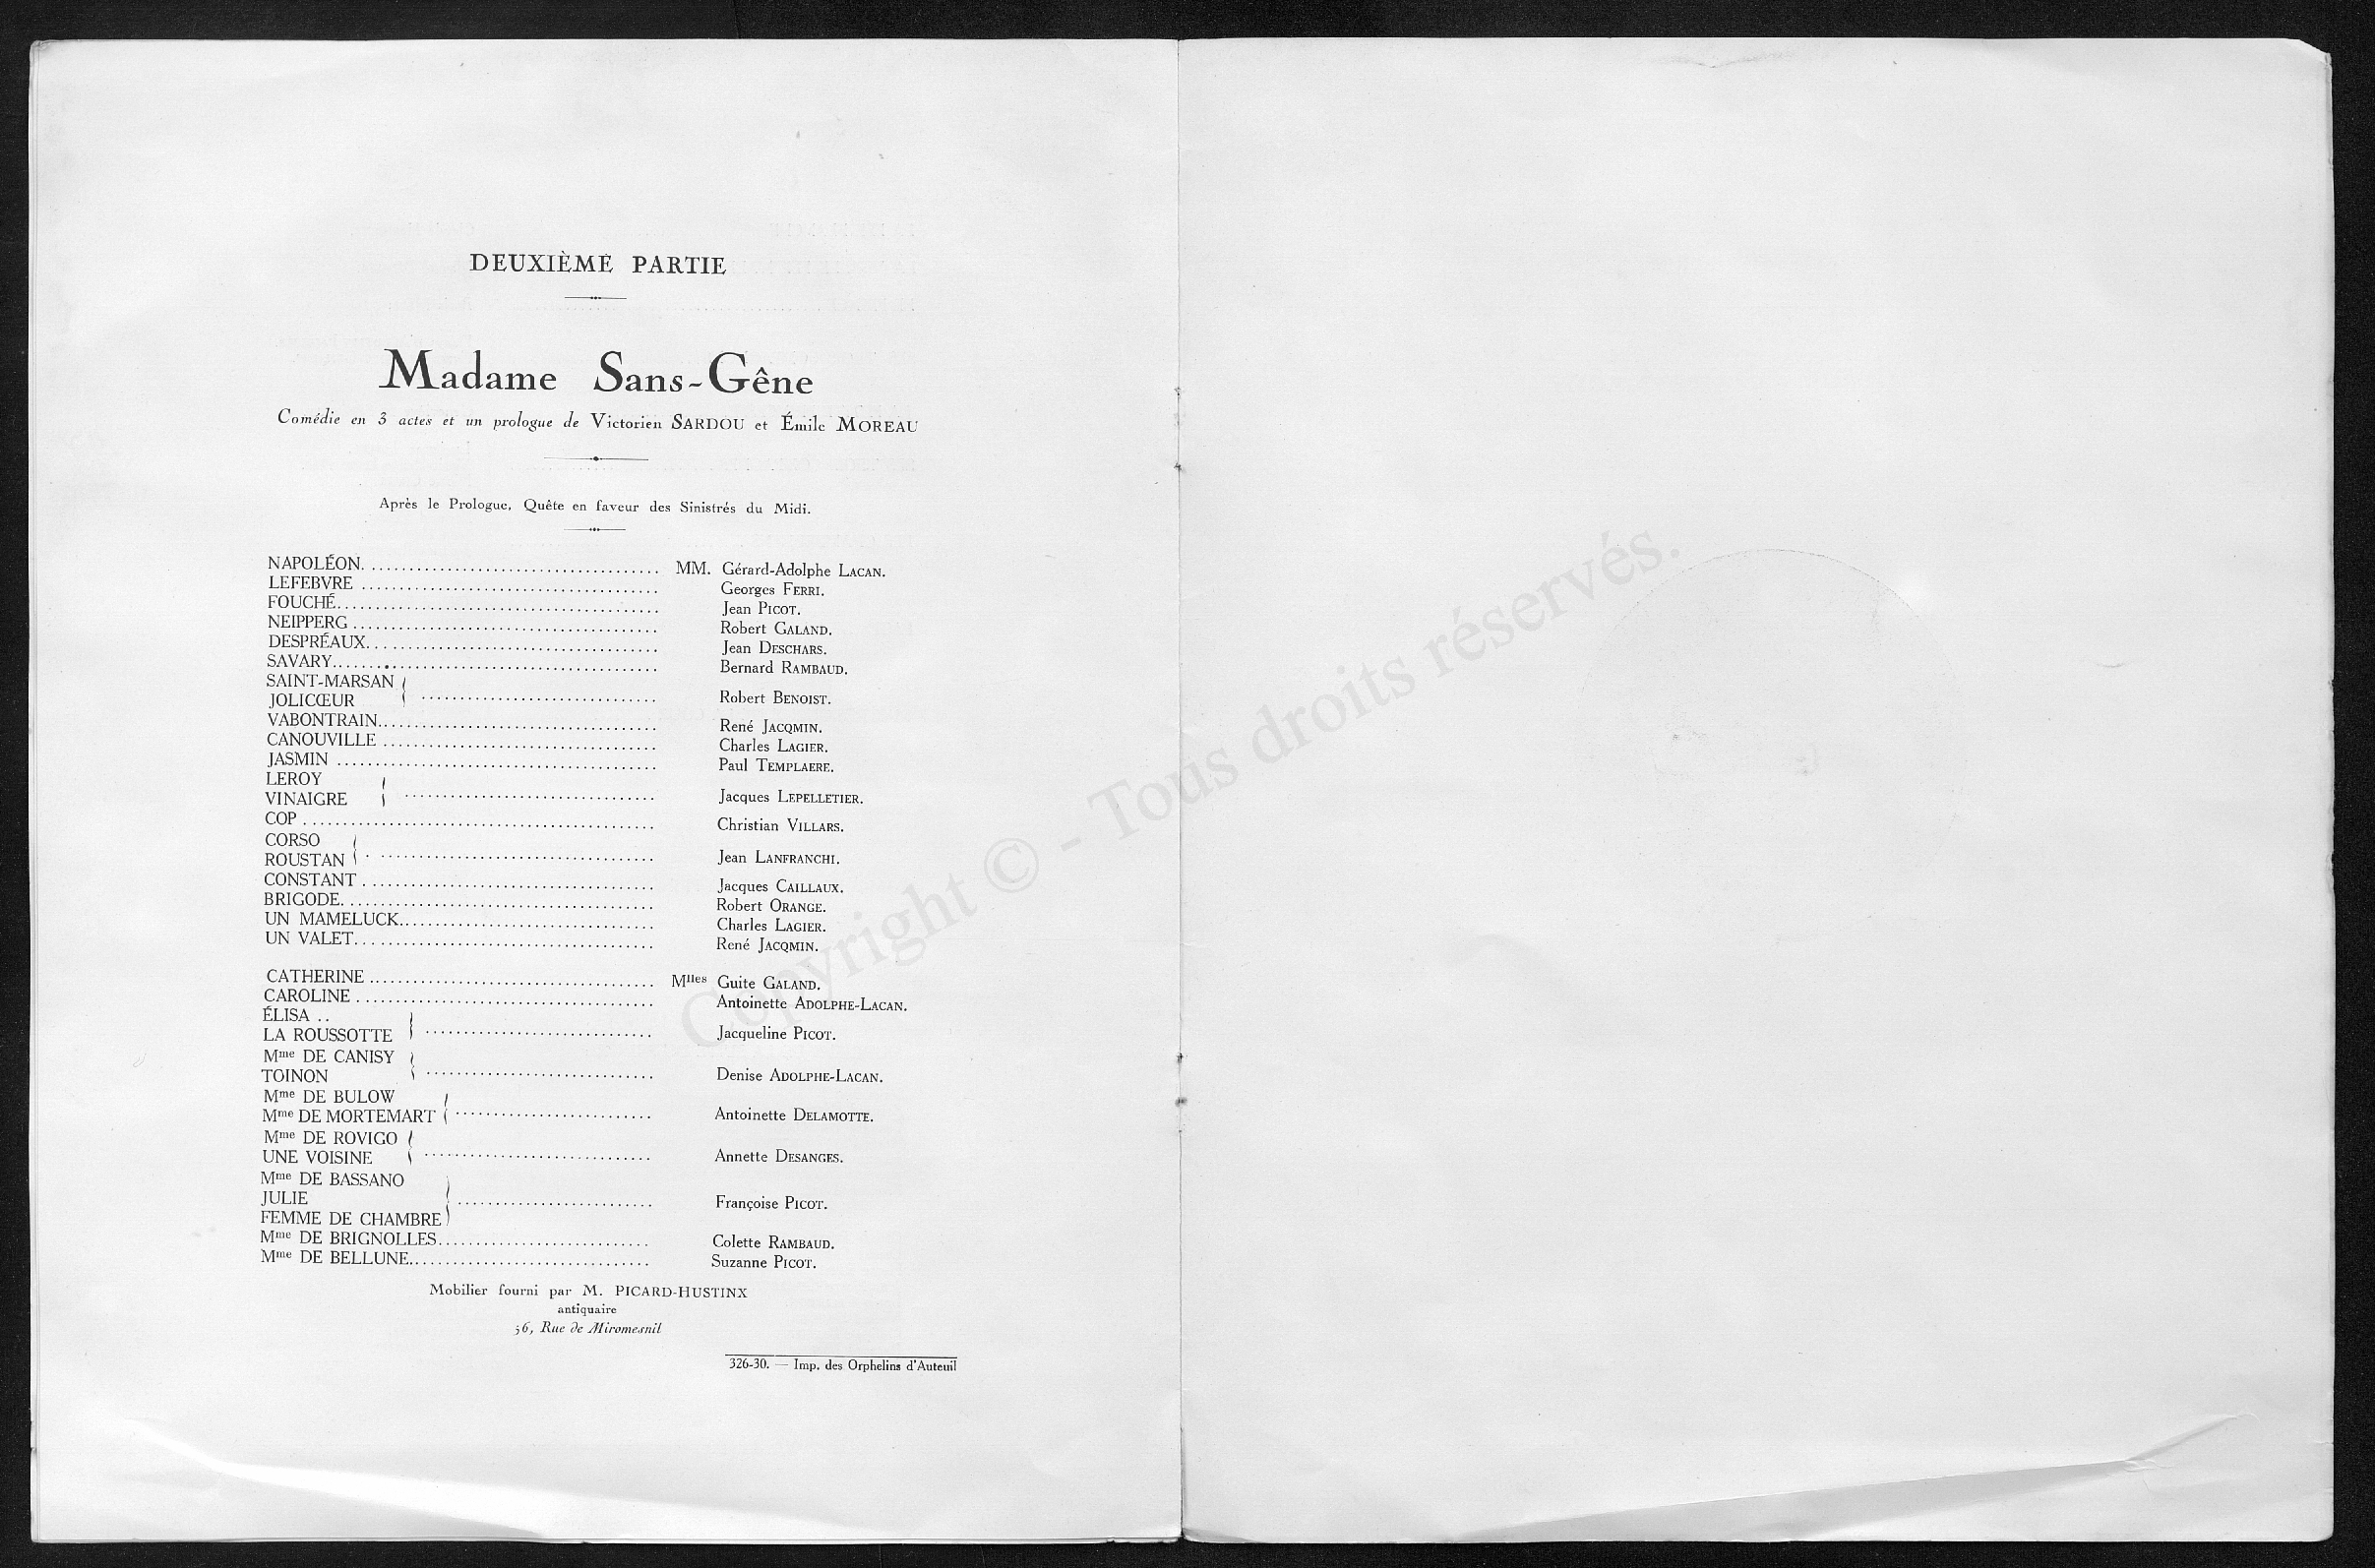 DEUXIÈME PARTIE
Madame Sans-Gêne
Comédie en 3 actes et un prologue de Victorien SARDOU et Émile MOREAU
Après le Prologue, Quête en faveur des Sinistrés du Midi.
NAPOLÉON. MM. Gérard-Adolphe LACAN.
LEFEBVRE Georges FERRI.
FOUCHÉ. Jean PICOT.
NEIPPERG Robert GALAND.
DESPRÉAUX. Jean DESCHARS.
SAVARY. Bernard RAMBAUD.
SAINT-MARSAN
JOLICŒUR Robert BENOIST.
VABONTRAIN. René JACQMIN.
CANOUVILLE Charles LAGIER.
JASMIN Paul TEMPLAERE.
LEROY
VINAIGRE Jacques LEPELLETIER.
COP Christian VILLARS.
CORSO
ROUSTAN Jean LANFRANCHI.
CONSTANT Jacques CAILLAUX.
BRIGODE. Robert ORANGE.
UN MAMELUCK. Charles LAGIER.
UN VALET. René JACQMIN.
CATHERINE Mlles Guite GALAND.
CAROLINE Antoinette ADOLPHE-LACAN.
ÉLISA ..
LA ROUSSOTTE Jacqueline PICOT.
Mme DE CANISY
TOINON Denise ADOLPHE-LACAN.
Mme DE BULOW
Mme DE MORTEMART Antoinette DELAMOTTE.
Mme DE ROVIGO
UNE VOISINE Annette DESANGES.
Mme DE BASSANO
JULIE Françoise PICOT.
FEMME DE CHAMBRE
Mme DE BRIGNOLLES. Colette RAMBAUD.
Mme DE BELLUNE. Suzanne PICOT.
Mobilier fourni par M. PICARD-HUSTINX
antiquaire
56, Rue de Miromesnil
326-30. — Imp. des Orphelins d'Auteuil
Copyright © - Tous droits réservés.